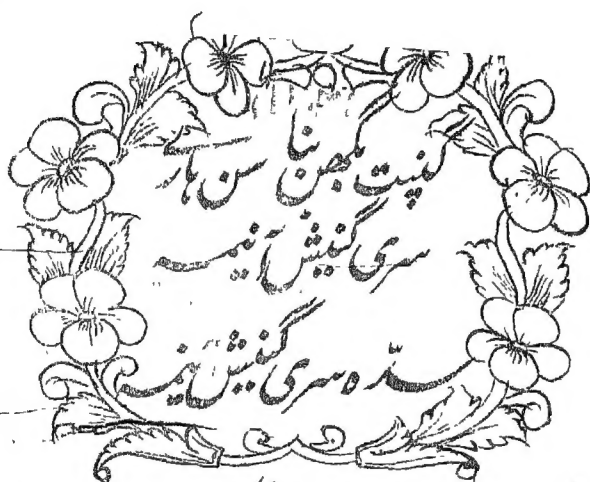 گنپت بگھن بنا سن ہاری
سری گنیش آنیمہ
سدّہ سری گنیش نیمہ